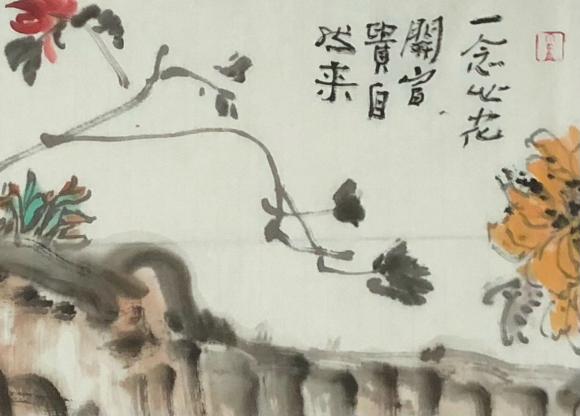 一念心花
開富
貴自
然来